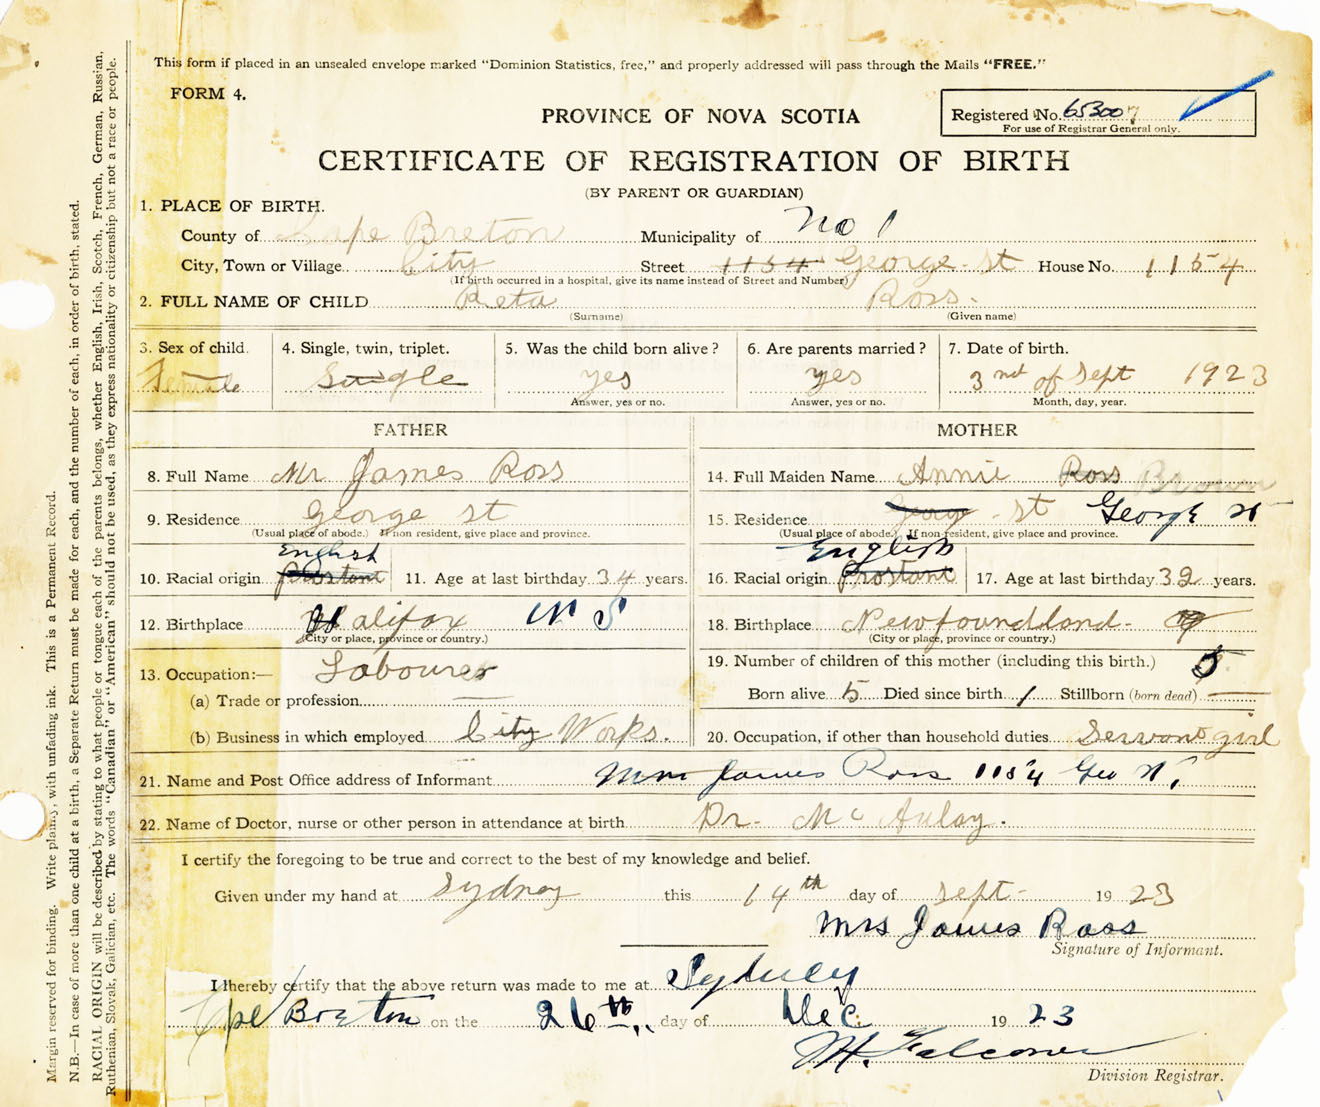 This form if placed in an unsealed envelope marked "Dominion Statistics, free," and properly addressed will pass through the Mails "FREE."
FORM 4.
PROVINCE OF NOVA SCOTIA
Registered No. 653007
For use of Registrar General only.
CERTIFICATE OF REGISTRATION OF BIRTH
(BY PARENT OR GUARDIAN)
1. PLACE OF BIRTH.
County of Cape Breton Municipality of No 1
City, Town or Village City Street 1154 George - St House No. 1154
(If birth occurred in a hospital, give its name instead of Street and Number)
2. FULL NAME OF CHILD Reta Ross.
(Surname) (Given name)
3. Sex of child. 4. Single, twin, triplet. 5. Was the child born alive? 6. Are parents married? 7. Date of birth.
Female Single yes yes 3nd of Sept 1923
Answer, yes or no. Answer, yes or no. Month, day, year.
FATHER MOTHER
8. Full Name Mr James Ross 14. Full Maiden Name Annie Ross Brown
9. Residence George St 15. Residence George - St George St
(Usual place of abode.) If non resident, give place and province. (Usual place of abode.) If non resident, give place and province.
English English
10. Racial origin 11. Age at last birthday 34 years. 16. Racial origin 17. Age at last birthday 32 years.
12. Birthplace Halifax N S 18. Birthplace Newfoundland -
(City or place, province or country.) (City or place, province or country.)
13. Occupation:— Labourer 19. Number of children of this mother (including this birth.) 5
(a) Trade or profession Born alive 5 Died since birth 1 Stillborn (born dead) —
(b) Business in which employed City Works. 20. Occupation, if other than household duties Servant girl
21. Name and Post Office address of Informant Mrs James Ross 1154 Geo St,
22. Name of Doctor, nurse or other person in attendance at birth Dr. McAulay.
I certify the foregoing to be true and correct to the best of my knowledge and belief.
Given under my hand at Sydney this 14th day of Sept - 1923
Mrs James Ross
Signature of Informant.
I hereby certify that the above return was made to me at Sydney
Cape Breton on the 26th day of Dec 1923
Falconer
Division Registrar.
Margin reserved for binding. Write plainly, with unfading ink. This is a Permanent Record.
N.B.—In case of more than one child at a birth, a Separate Return must be made for each, and the number of each, in order of birth, stated.
RACIAL ORIGIN will be described by stating to what people or tongue each of the parents belongs, whether English, Irish, Scotch, French, German, Russian,
Ruthenian, Slovak, Galician, etc. The words "Canadian" or "American" should not be used, as they express nationality or citizenship but not a race or people.